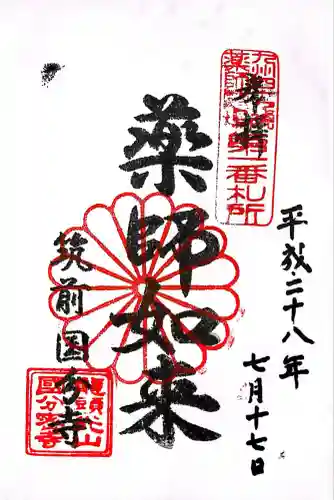 奉拝
九州四十九院
薬師霊場
第一番札所
平成二十八年
七月十七日
薬師如来
筑前国分寺
龍頭光山
国分尼寺